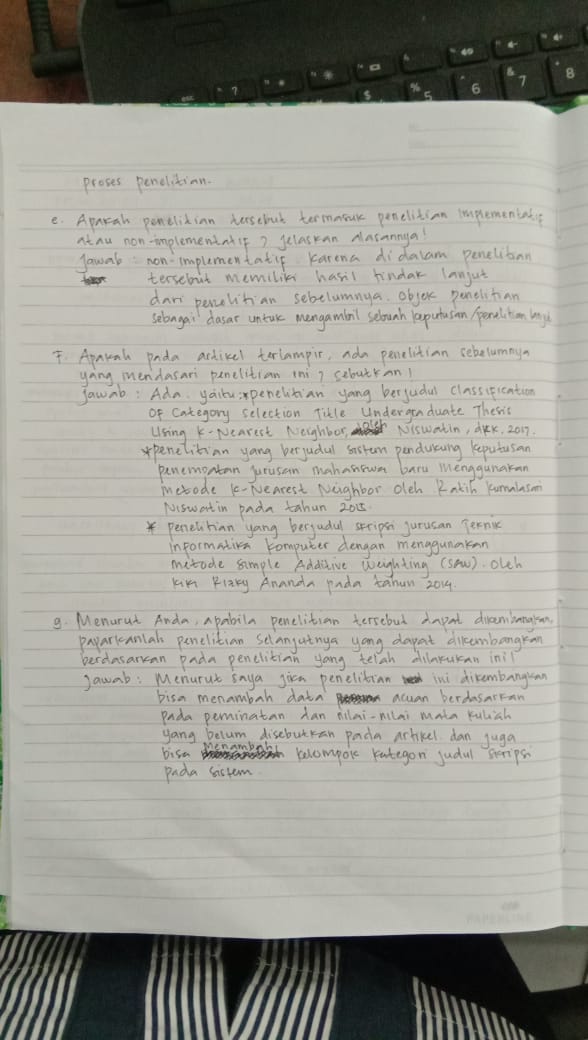 proses penelitian.
e. Apakah penelitian tersebut termasuk penelitian implementatif
atau non-implementatif ? jelaskan alasannya!
Jawab : non-implementatif. karena di dalam penelitian
tersebut memiliki hasil tindak lanjut
dari penelitian sebelumnya. objek penelitian
sebagai dasar untuk mengambil sebuah keputusan/penelitian lanjut
F. Apakah pada artikel terlampir, ada penelitian sebelumnya
yang mendasari penelitian ini ? sebutkan!
Jawab : Ada. yaitu : * penelitian yang berjudul Classification
Of Category Selection Title Undergraduate Thesis
Using K-Nearest Neighbor, Niswatin, dkk, 2017.
* penelitian yang berjudul sistem pendukung keputusan
penempatan jurusan mahasiswa baru menggunakan
metode K-Nearest Neighbor oleh Ratih Kumalasari
Niswatin pada tahun 2015.
* penelitian yang berjudul skripsi jurusan Teknik
Informatika Komputer dengan menggunakan
metode Simple Additive Weighting (SAW). Oleh
Kiki Rizky Ananda pada tahun 2014.
g. Menurut Anda, apabila penelitian tersebut dapat dikembangkan,
paparkanlah penelitian selanjutnya yang dapat dikembangkan
berdasarkan pada penelitian yang telah dilakukan ini!
Jawab : Menurut saya jika penelitian ini dikembangkan
bisa menambah data acuan berdasarkan
pada peminatan dan nilai-nilai mata kuliah
yang belum disebutkan pada artikel. dan juga
bisa Menambah kelompok kategori judul skripsi
pada sistem.
PAPERLINE
esc
?
$
%
5
^
6
&
7
*
8